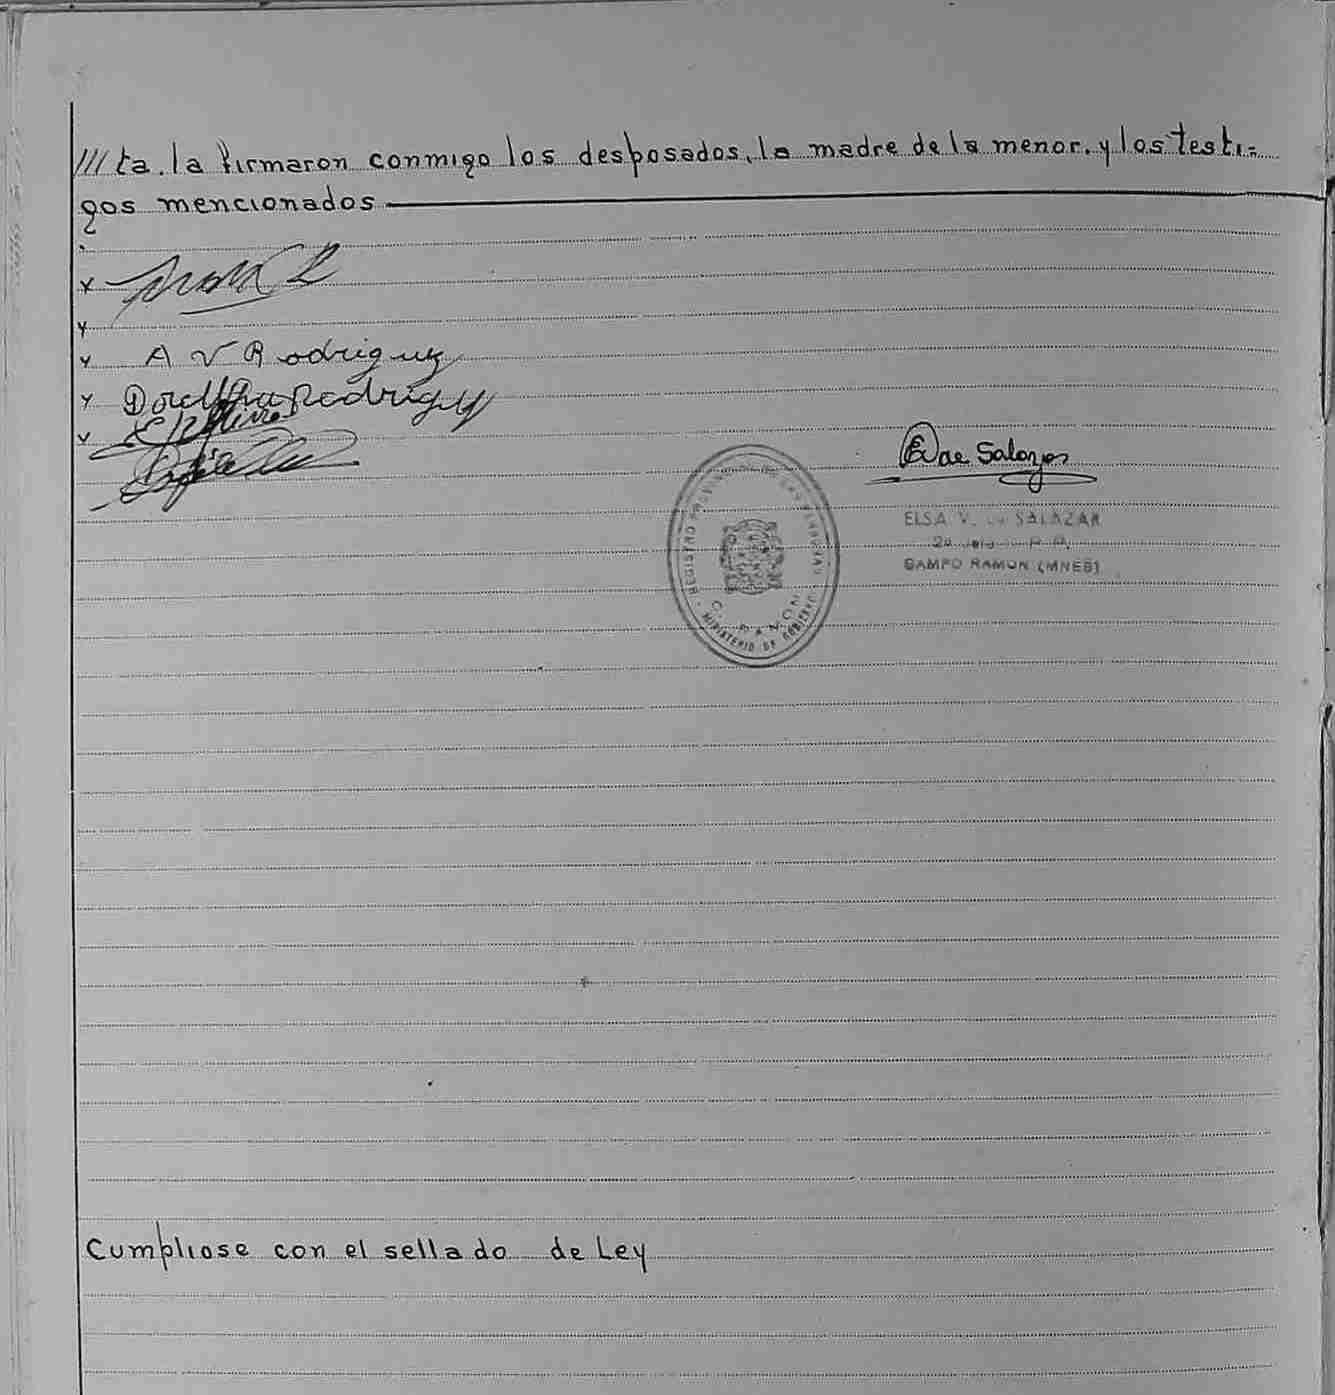 ///ta. la firmaron conmigo los desposados, la madre de la menor. y los testi=
gos mencionados
x
x
x A V Rodriguez
x Dorothea Rodriguez
x
E V de Salazar
ELSA V. de SALAZAR
CAMPO RAMON (MNES)
REGISTRO PROVINCIAL DE LAS PERSONAS
C. RAMON
MINISTERIO DE GOBIERNO
Cumpliose con el sellado de Ley